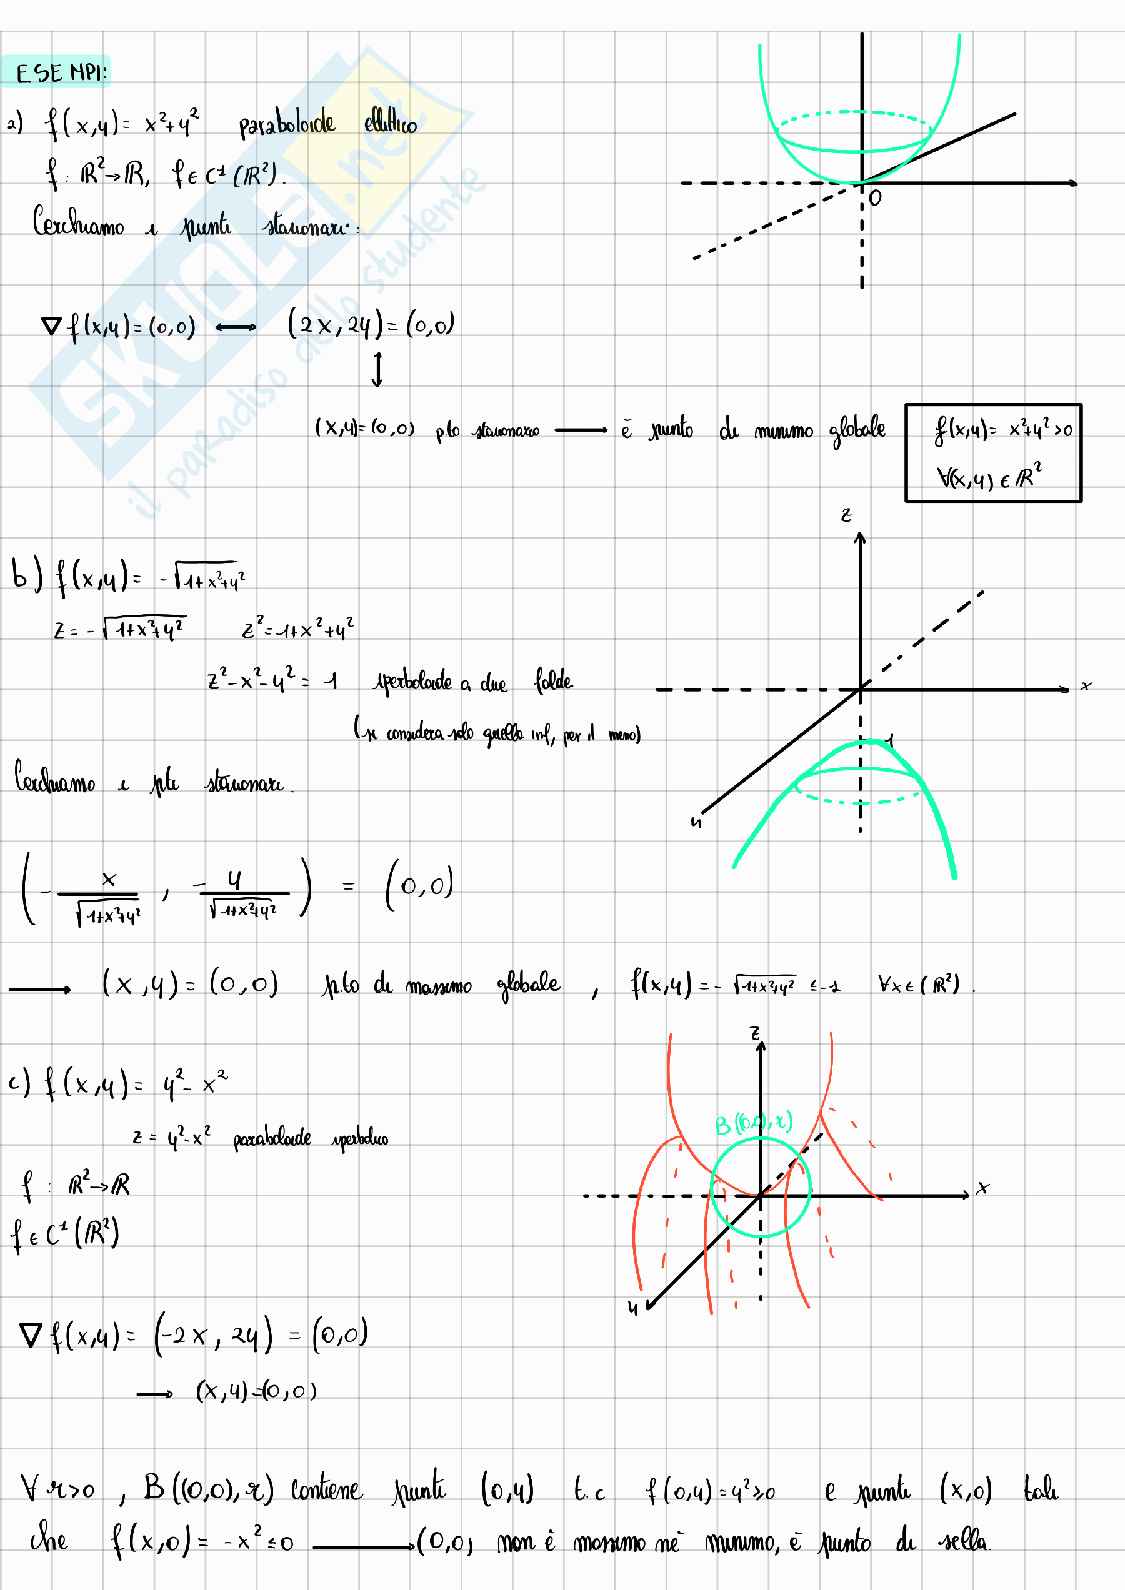 ESEMPI:
a) f(x,y) = x²+y² paraboloide ellittico
f : ℝ²→ℝ, f ∈ C¹(ℝ²).
Cerchiamo i punti stazionari:
O
∇f(x,y) = (0,0) ⟷ (2x, 2y) = (0,0)
↕
(x,y) = (0,0) pto stazionario ⟶ è punto di minimo globale
f(x,y) = x²+y² >0
∀(x,y) ∈ ℝ²
z
x
y
-1
b) f(x,y) = -√(1+x²+y²)
z = -√(1+x²+y²) z² = 1+x²+y²
z²-x²-y² = 1 iperboloide a due falde
(si considera solo quella inf, per il meno)
Cerchiamo i pti stazionari.
(- x/√(1+x²+y²) , - y/√(1+x²+y²)) = (0,0)
⟶ (x,y) = (0,0) pto di massimo globale , f(x,y) = -√(1+x²+y²) ≤ -1 ∀x ∈ (ℝ²).
c) f(x,y) = y²-x²
z = y²-x² paraboloide iperbolico
f : ℝ²→ℝ
f ∈ C¹(ℝ²)
z
B((0,0),r)
x
y
∇f(x,y) = (-2x, 2y) = (0,0)
⟶ (x,y) = (0,0)
∀r>0 , B((0,0),r) contiene punti (0,y) t.c f(0,y) = y² ≥0 e punti (x,0) tali
che f(x,0) = -x² ≤0 ⟶ (0,0) non è massimo né minimo, è punto di sella.
SKUOLA.net
il paradiso dello studente